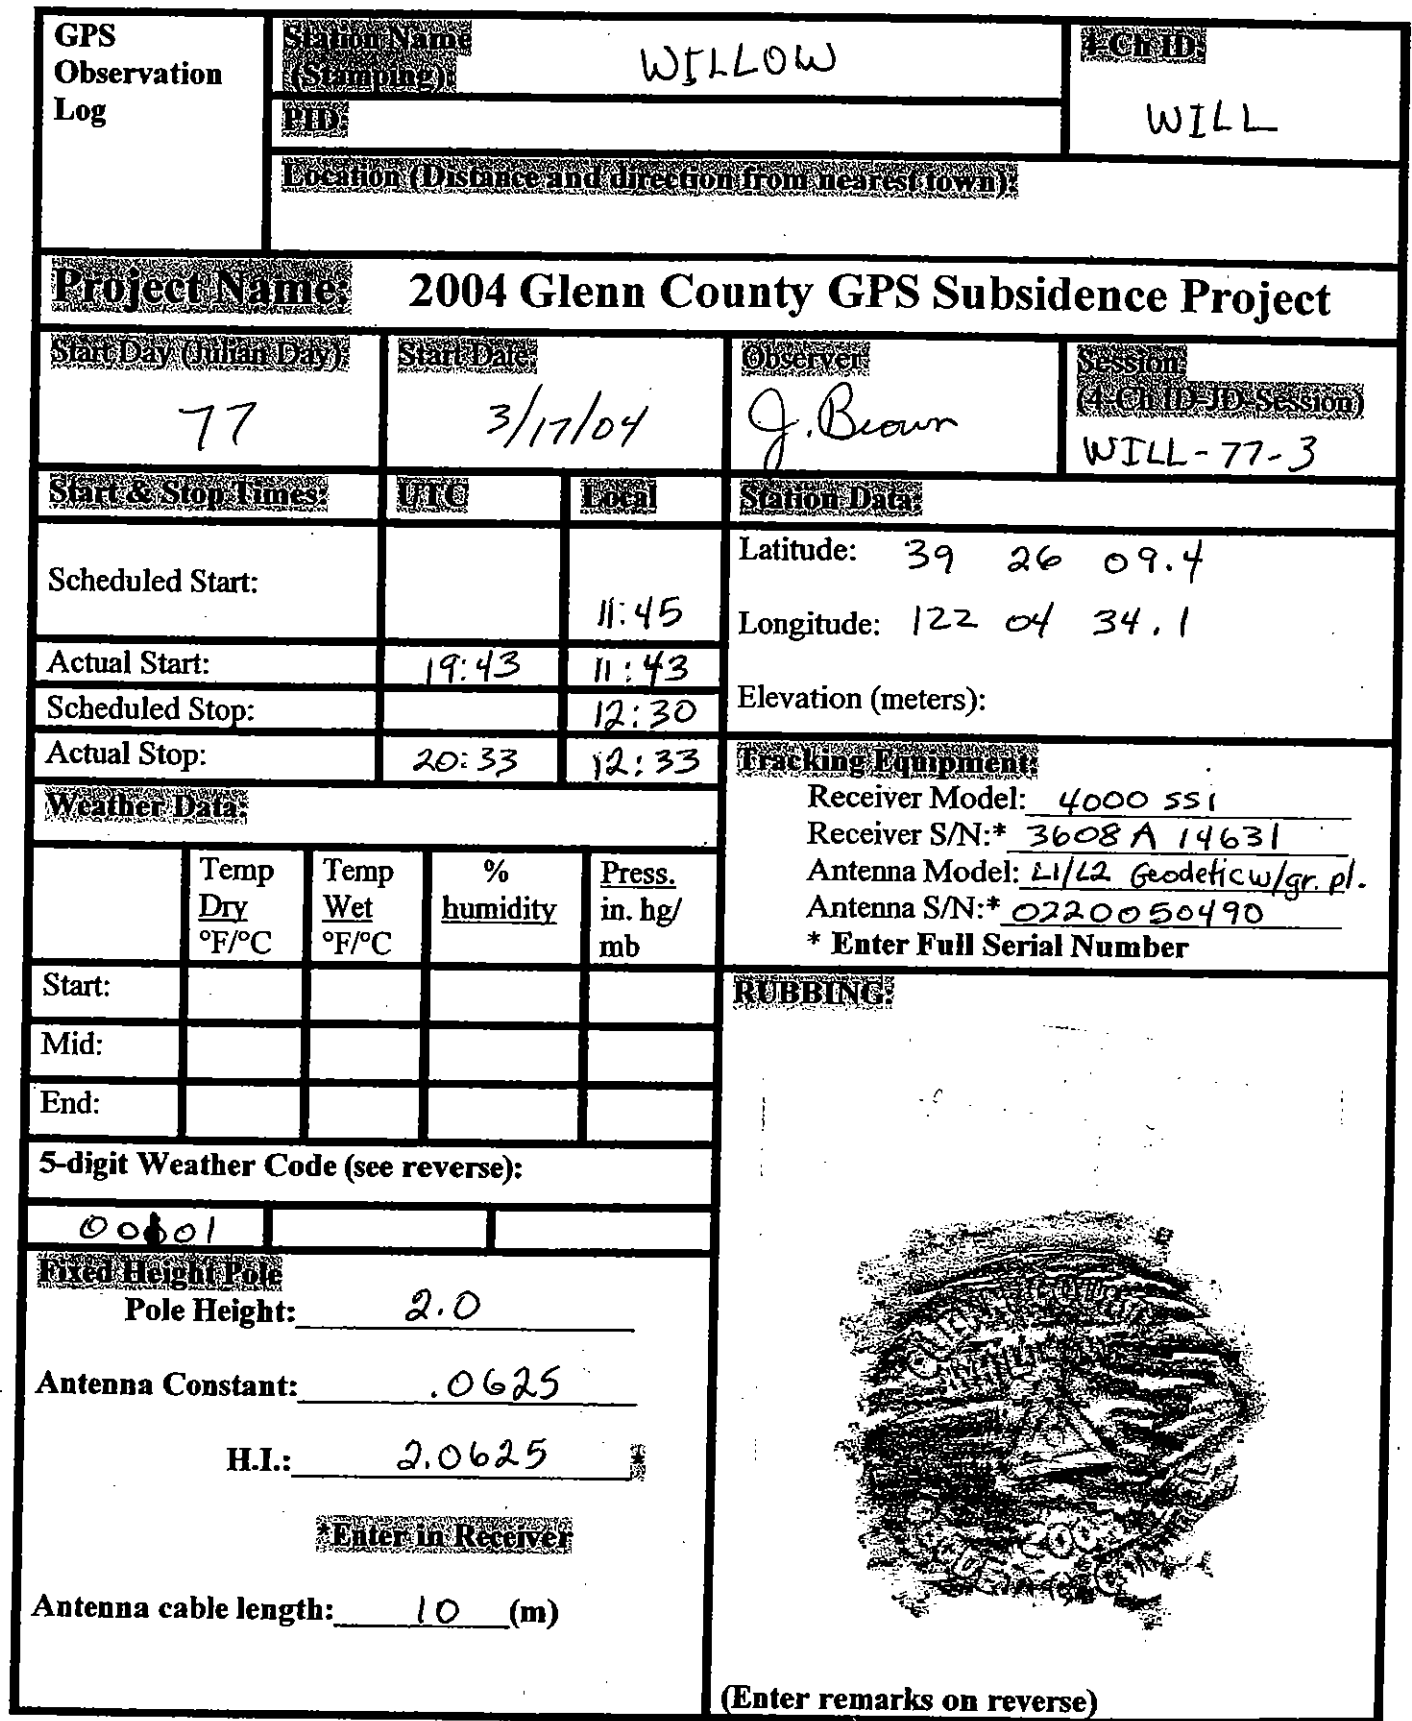 GPS
Observation
Log
Station Name
(Stamping):
WILLOW
4-Ch ID:
WILL
PID:
Location (Distance and direction from nearest town):
Project Name: 2004 Glenn County GPS Subsidence Project
Start Day (Julian Day):
77
Start Date:
3/17/04
Observer:
J. Brown
Session:
(4-Ch ID-JD-Session)
WILL-77-3
Start & Stop Times: UTC Local
Scheduled Start: 11:45
Actual Start: 19:43 11:43
Scheduled Stop: 12:30
Actual Stop: 20:33 12:33
Station Data:
Latitude: 39 26 09.4
Longitude: 122 04 34.1
Elevation (meters):
Tracking Equipment:
Receiver Model: 4000 SSi
Receiver S/N:* 3608 A 14631
Antenna Model: L1/L2 Geodetic w/gr. pl.
Antenna S/N:* 0220050490
* Enter Full Serial Number
Weather Data:
Temp
Dry
°F/°C
Temp
Wet
°F/°C
%
humidity
Press.
in. hg/
mb
Start:
Mid:
End:
5-digit Weather Code (see reverse):
00001
Fixed Height Pole
Pole Height: 2.0
Antenna Constant: .0625
H.I.: 2.0625 *
*Enter in Receiver
Antenna cable length: 10 (m)
RUBBING:
(Enter remarks on reverse)